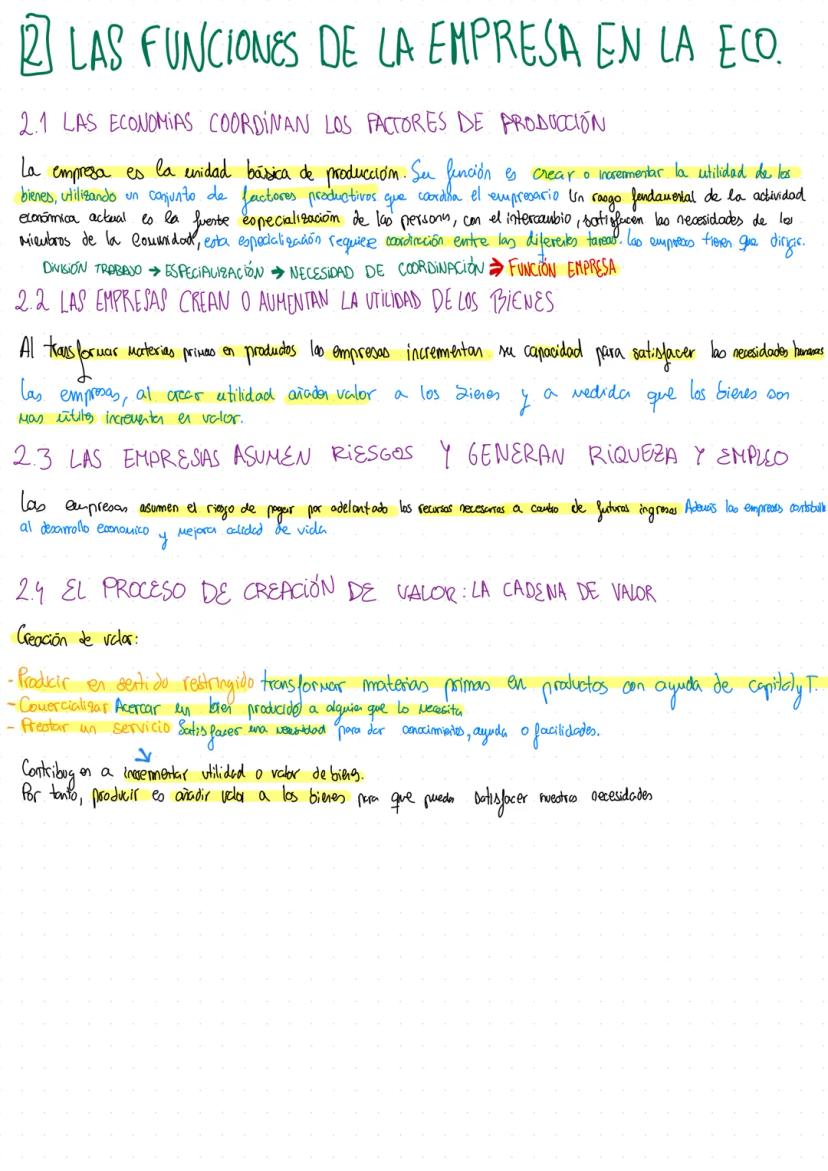 2 LAS FUNCIONES DE LA EMPRESA EN LA ECO.
2.1 LAS ECONOMIAS COORDINAN LOS FACTORES DE PRODUCCIÓN
La empresa es la unidad básica de producción. Su función es crear o incrementar la utilidad de los
bienes, utilizando un conjunto de factores productivos que coordina el empresario Un rasgo fundamental de la actividad
económica actual es la fuerte especialización de las persons, con el intercambio, satisfacen las necesidades de los
miembros de la comunidad, esta especialización requiere coordinación entre las diferentes tareas. Las empresas tienen que dirigir.
DIVISIÓN TRABAJO → ESPECIALIZACIÓN → NECESIDAD DE COORDINACIÓN → FUNCIÓN EMPRESA
2.2 LAS EMPRESAS CREAN O AUMENTAN LA UTILIDAD DE LOS BIENES
Al transformar materias primas en productos las empresas incrementan su capacidad para satisfacer las necesidades humanas
Las empresas, al crear utilidad añaden valor a los bienes y a medida que los bienes son
mas útiles incrementan en valor.
2.3 LAS EMPRESAS ASUMEN RIESGOS Y GENERAN RIQUEZA Y EMPLEO
Las empresas asumen el riesgo de pagar por adelantado los recursos necesarios a cambio de futuros ingresos Además las empresas contribuyen
al desarrollo economico y mejora calidad de vida
2.4 EL PROCESO DE CREACIÓN DE VALOR: LA CADENA DE VALOR
Creación de valor:
- Producir en sentido restringido transformar materias primas en productos con ayuda de capital y T.
- Comercializar Acercar un bien producido a alguien que lo necesita
- Prestar un servicio Satisfacer una necesidad para dar conocimientos, ayuda o facilidades.
Contribuyen a incrementar utilidad o valor de bienes.
Por tanto, producir es añadir valor a los bienes para que puedan satisfacer nuestras necesidades